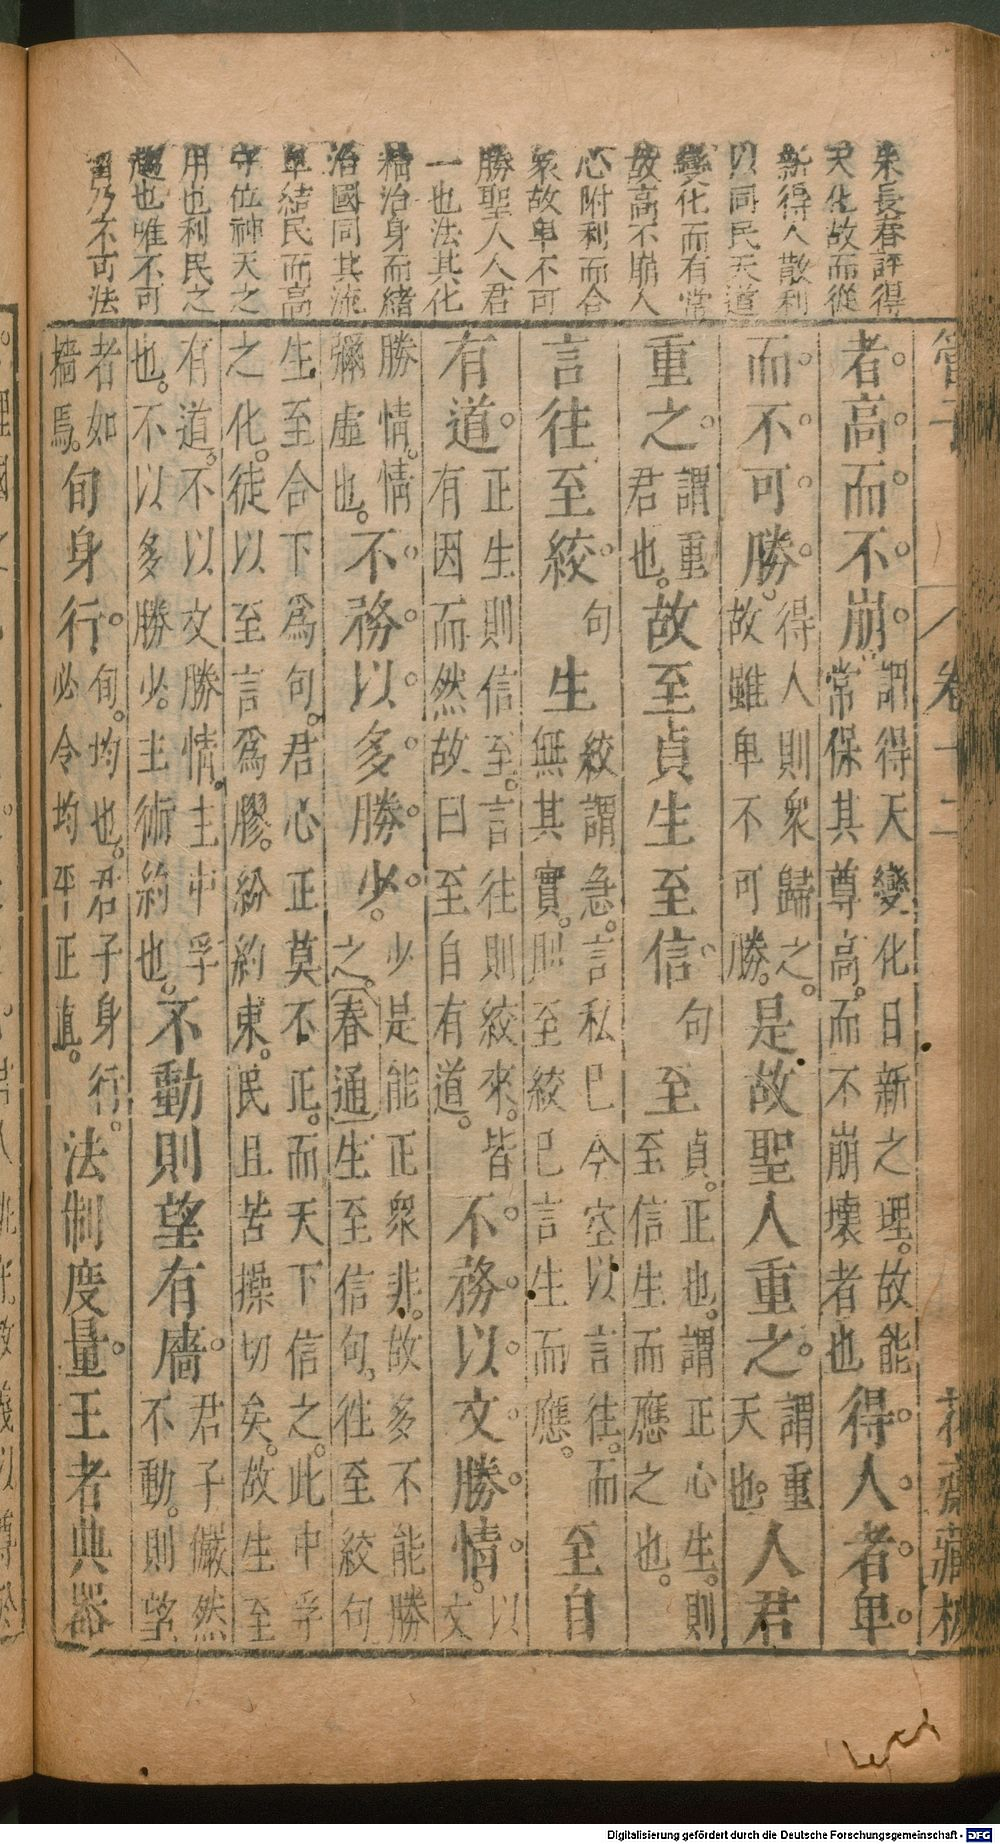 朱長春評得
天化故而從
新得人散利
以同民天道
變化而有常
故高不崩人
心附利而合
衆故卑不可
勝聖人人君
一也法其化
精治身而緒
治國同其流
卑結民而高
守位神天之
用也利民之
趣也唯不可
乃不可法
管子
卷十二
花齋藏板
者。高而不崩。謂得天變化日新之理。故能
常保其尊高。而不崩壞者也得。人。者。卑。
而。不。可。勝。得人則衆歸之。
故雖卑不可勝。是故聖人重之。謂重
天也。人君
重之。謂重
君也。故至貞生至信。句至貞。正也。謂正心生。則
至信生而應之也。
言往至絞。句生絞謂急。言私已今空以言往。而
無其實。則至絞已言生而應。至自
有道。正生則信至。言往則絞來。皆
有因而然故曰至自有道。不。務。以。文。勝。情。以
文
勝情。情
彌虛也。不。務。以。多。勝。少。少是能正衆非。故多不能勝
之。(春通)生至信句。往至絞句
生至合下爲句。君心正莫不正。而天下信之。此中孚
之化。徒以至言爲膠。紛約束。民且苦操切矣。故生至
有道。不以文勝情。主中孚
也。不以多勝少。主術約也。不動則望有廧。君子儼然
不動。則望
者如
牆焉。旬身行。旬。均也。君子身行。
必令均平正直。法制度量。王者典器
Digitalisierung gefördert durch die Deutsche Forschungsgemeinschaft - DFG